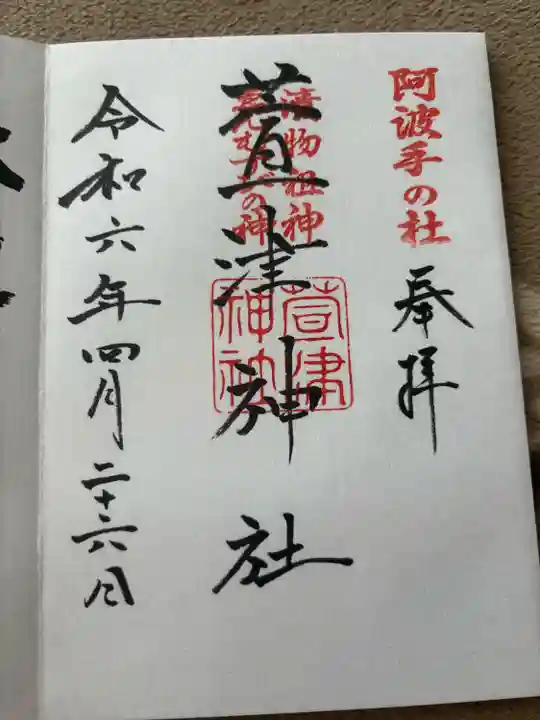 阿波手の杜
奉拝
漬物祖神
縁むすびの神
萱津神社
萱津神社
令和六年四月二十六日